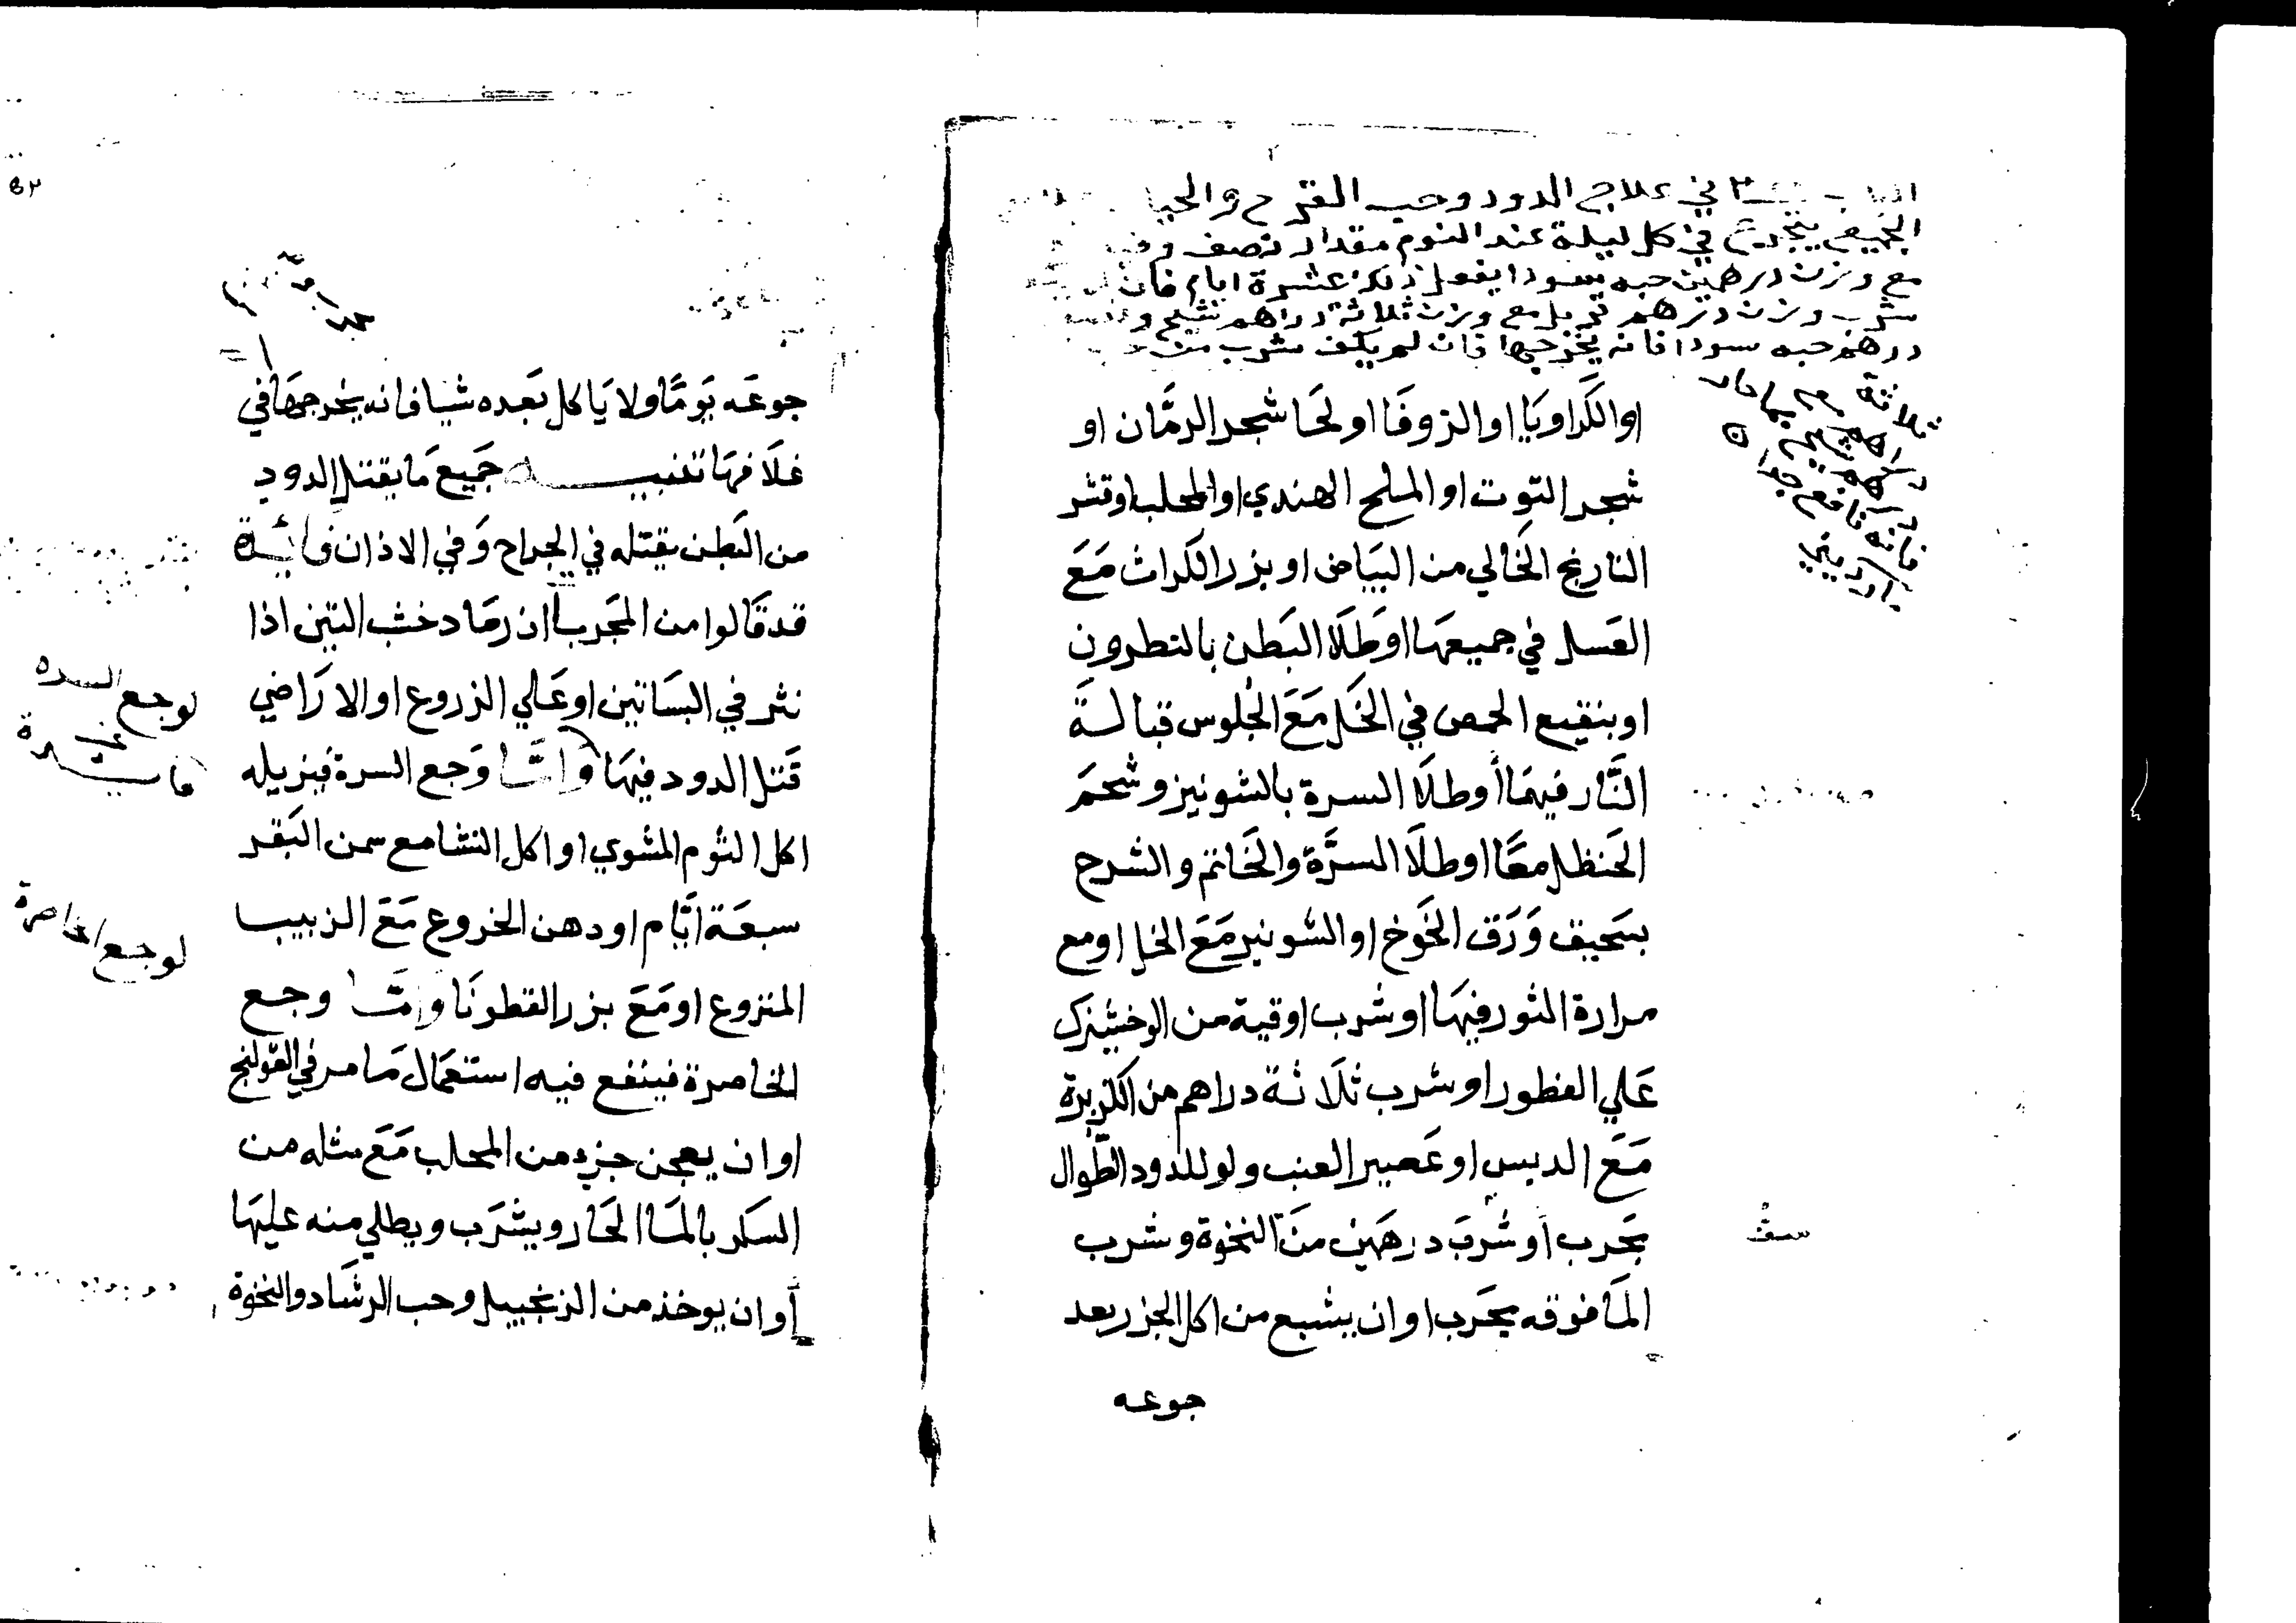 في علاج الدود وحب القرع والحيا
الجميع يتجرع في كل ليلة عند النوم مقدار نصف
مع وزن درهمين حبه سودا يفعل ذلك عشرة ايام فان
شرب وزن درهم مع وزن ثلاثة دراهم شيح
درهم حبه سودا فانه يخرجها فان لم يكف شرب من
ثلاثة
فانه نافع جدا
اوالكراويا اوالزوفا اولحا شجر الرمان او
شجر التوت اوالملح الهندي اوالمحلب اوقشر
النارنج الخالي من البياض اوبزر الكراث مع
العسل في جميعها اوطلا البطن بالنطرون
اوبنقيع الحمص في الخل مع الجلوس قبالة
النار فيهما أوطلا السرة بالشونيز وشحم
الحنظل معا اوطلا السرة والخاتم والشرج
بسحيق ورق الخوخ اوالشونيز مع الخل اومع
مرارة الثور فيها اوشرب اوقية من الوخشيزك
علي الفطور اوشرب ثلاثة دراهم من الكزبرة
مع الدبس اوعصير العنب ولو للدود الطوال
مجرب أوشرب درهمين من النخوة وشرب
الما فوقه مجرب اوان يشبع من اكل الجزر بعد
جوعه
جوعه يوما ولا ياكل بعده شيا فانه يخرجها في
غلافها تنبيه جميع ما يقتل الدود
من البطن يقتله في الجراح وفي الاذان فائدة
قد قالوا من المجرب ان رماد خشب التين اذا
نثر في البساتين اوعلي الزروع اوالاراضي
قتل الدود فيها واما وجع السرة فيزيله
اكل الثوم المشوي اواكل النشا مع سمن البقر
سبعة ايام اودهن الخروع مع الزبيب
المنزوع اومع بزر القطونا واما وجع
الخاصرة فينفع فيه استعمال ما مر في القولنج
اوان يعجن جزء من المحلب مع مثله من
السكر بالما الحار ويشرب ويطلي منه عليها
أوان يوخذ من الزنجبيل وحب الرشاد والنخوة
لوجع السره
فايدة
لوجع الخاصرة